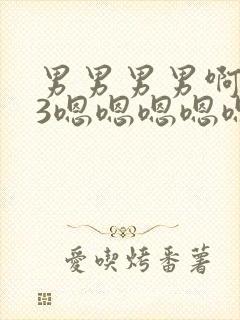 男男男男啊
3嗯嗯嗯嗯嗯
愛喫烤番薯